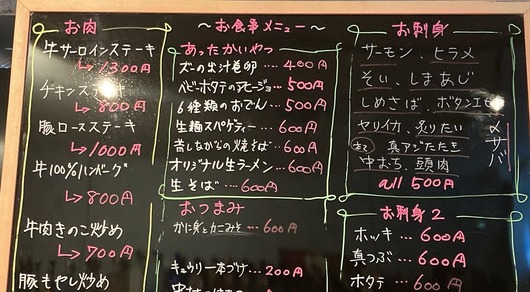 お肉
牛サーロインステーキ
→1300円
チキンステーキ
→800円
豚ロースステーキ
→1000円
牛100%ハンバーグ
→800円
牛肉きのこ炒め
→700円
豚もやし炒め
〜お食事メニュー〜
あったかいやつ
ズーの出汁巻卵…400円
ベビーホタテのアヒージョ…500円
6種類のおでん…500円
生麺スパゲティー…600円
昔しながらの焼そば…600円
オリジナル生ラーメン…600円
生そば…600円
おつまみ
かに爪とカニみそ…600円
キュウリ一本づけ…200円
お刺身
サーモン、ヒラメ
そい、しまあじ
しめさば、ボタンエビ
ヤリイカ、炙りたい
真アジたたき
中おち、頭肉
all 500円
〆サバ
お刺身2
ホッキ…600円
真つぶ…600円
ホタテ…600円